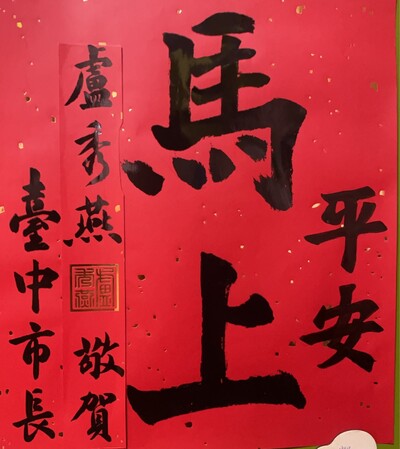 馬上
平安
臺中市長
盧秀燕 敬賀